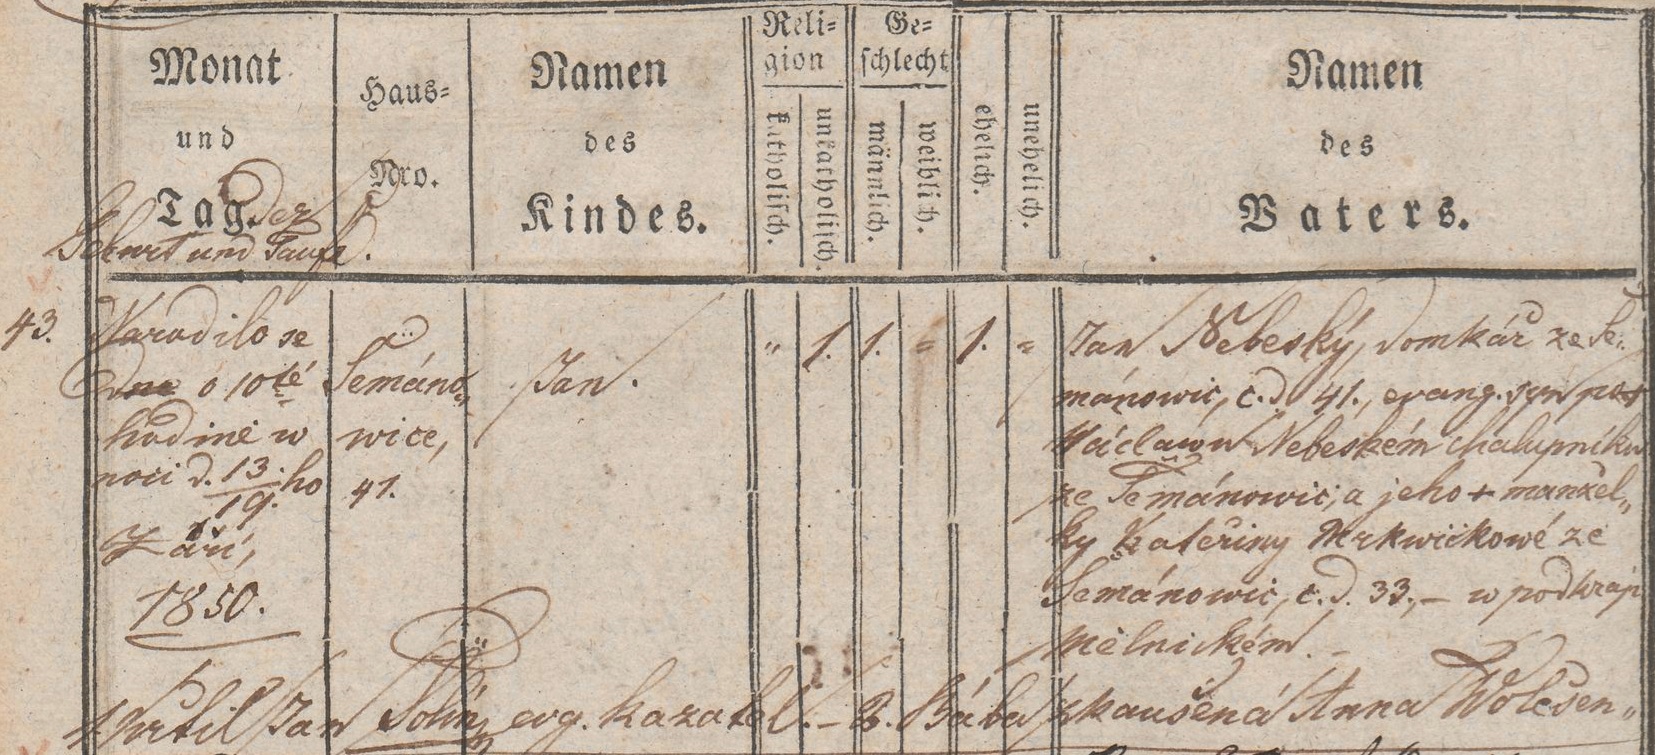 Monat
und
Tag der
Geburt und Taufe.
Haus=
Nro.
Namen
des
Kindes.
Reli=
gion
katholisch.
unkatholisch.
Ge=
schlecht
männlich.
weiblich.
ehelich.
unehelich.
Namen
des
Vaters.
43.
Narodilo se
o 10té
hodině w
noci d. 13./19. ho
Září,
1850.
Šemáno„
wice,
41.
Jan.
" 1. 1. = 1. =
Jan Nebeský, domkář ze Še„
mánowic, č.d. 41., evang. syn po +
Václawu Nebeském chalupníku
ze Šemánowic, a jeho + manžel„
ky Kateřiny Mrkwičkowé ze
Šemánowic, č.d. 33., – w podkraji
Mělnickém. –
Křtil Jan evg. kazatel. – B. Bába zkaušená Anna Wolešen„